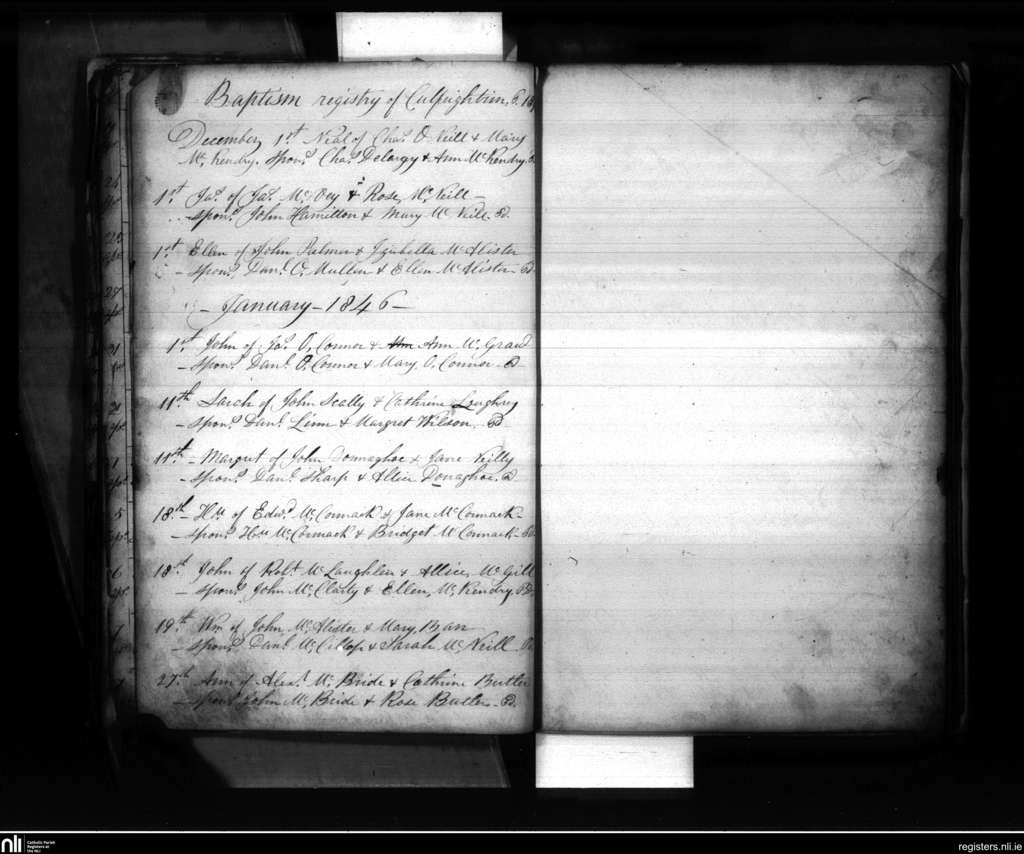 Baptism registry of Culfeightrin,
December, 1st Neal of Chas. O Neill & Mary
Mc. Kendry. Spons. Chas. Delargy & Ann McKendry.
1st Jas. of Jas. Mc. Vey & Rose, Mc. Neill —
— Spons. John Hamilton & Mary Mc Neill. Pd.
1st Ellen of John Palmer & Izabella McAlister
— Spons. Danl. O, Mullin & Ellen McAlister — Pd
— January — 1846 —
1st John of Jas. O, Connor & Ann Mc, Grand
— Spons. Danl. O, Connor & Mary, O, Connor — Pd —
11th Sarah of John Scally & Cathrine Loughrey
— Spons. Danl. Linn & Margret Wilson, Pd.
11th — Margret of John Donnaghoe & Jane Reilly
— Spons. Danl. Sharp & Allice Donaghoe. Pd
18th — of Edwd. Mc, Cormack & Jane McCormack —
— Spons. McCormack & Bridget McCormack — Pd.
18th John of Robt. McLaughlin & Allice, Mc, Gill
— Spons. John Mc, Clarty & Ellen, Mc, Kendry, Pd.
19th Wm of John Mc, Alister & Mary, Barr
— Spons. Danl. Mc, Cillop & Sarah Mc, Neill —
27th Ann of Alexr. Mc, Bride & Cathrine Butler
— Spons. John Mc, Bride & Rose Butler — Pd.
nli
Catholic Parish
Registers at
the NLI
registers.nli.ie